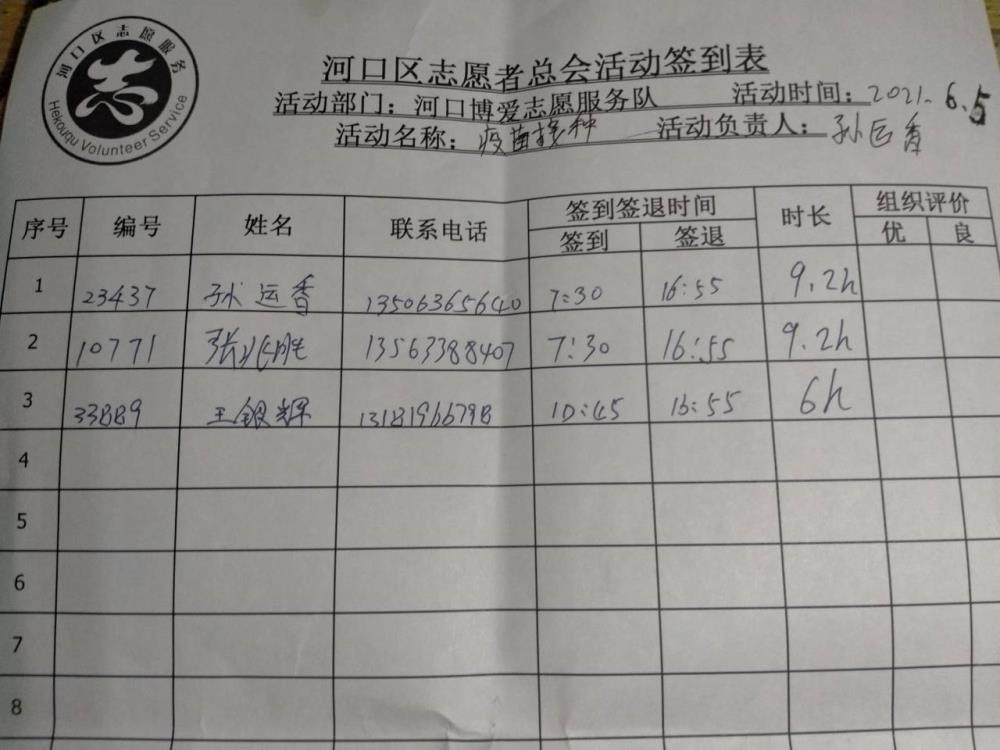 河口区志愿服务
Hekouqu Volunteer Service
志
河口区志愿者总会活动签到表
活动部门：河口博爱志愿服务队 活动时间：2021.6.5
活动名称：疫苗接种 活动负责人：孙运香
序号 编号 姓名 联系电话 签到签退时间 时长 组织评价
签到 签退 优 良
1 23437 孙运香 13506365640 7:30 16:55 9.2h
2 10771 张兆胜 13563388407 7:30 16:55 9.2h
3 33889 王银辉 13181966798 10:45 16:55 6h
4
5
6
7
8